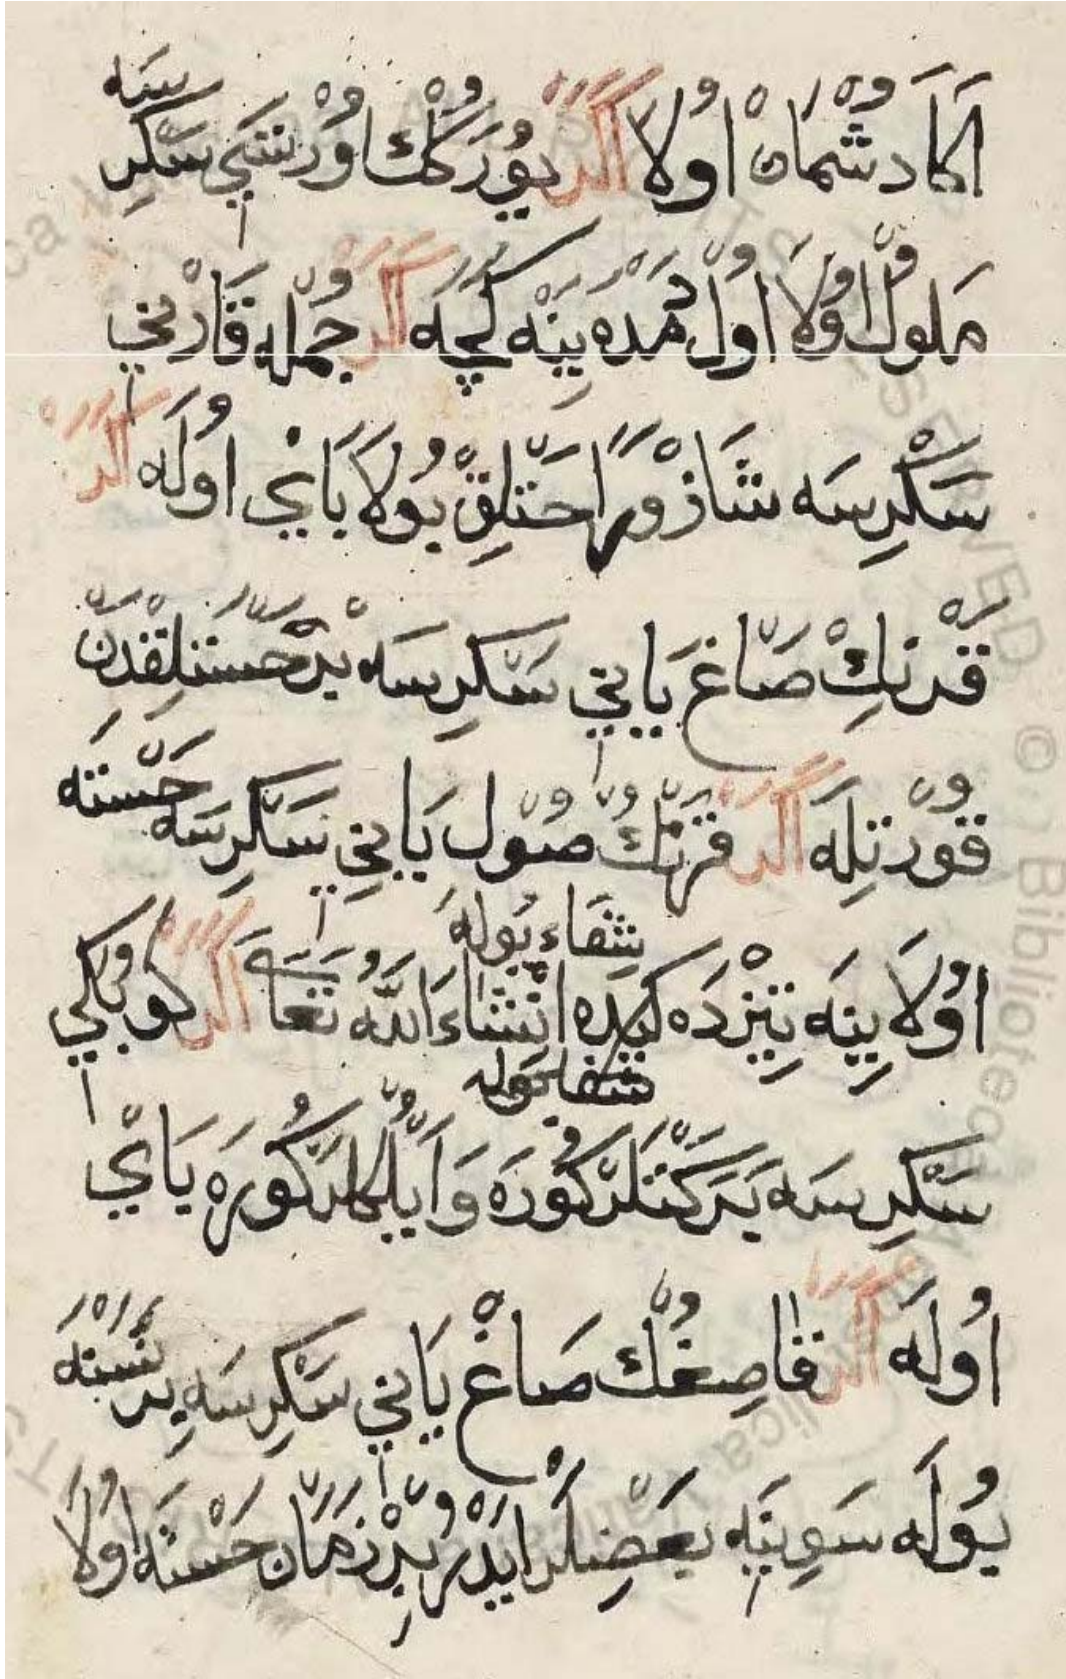 اَكَا دُشْمَانْ اُولَا اَگَرْ يُورَكُكْ اُورْتَسِي سَكِرسَه
مَلُولْ اُولَا اُولْ دَمْدَه يِنَه كَچَه اَگَرْ جُمْلَه قَارْنِي
سَكِرِسَه شَازْ وَرَاحَتْلِقْ بُولَا بَايْ اُولَه اَگَرْ
قَرْنِكْ صَاغْ يَانِي سَكِرِسَه بِرْ خَسْتَلِقْدَنْ
قُورْتِلَه اَگَرْ قَرْنُكْ صُولْ يَانِي سَكِرِسَه خَسْتَه
اُولَا يِنَه تِيزْدَه شِفَاء بُولَه اِنْشَاءَ اللّٰهُ تَعَالَى اَگَرْ كُوبَكِي
شفا بوله
سَكِرِسَه بَرَكَتْلَرْ كُورَه وَاَيُلِكْلَرْ كُورَه بَايْ
اُولَه اَگَرْ قَاصِغُكْ صَاغْ يَانِي سَكِرِسَه بِرْ نَسْنَه
بُولَه سَوِينَه بَعَضِلَرْ اَيْدُرْ بِرْ زَمَانْ خَسْتَه اُولَا
Biblioteca